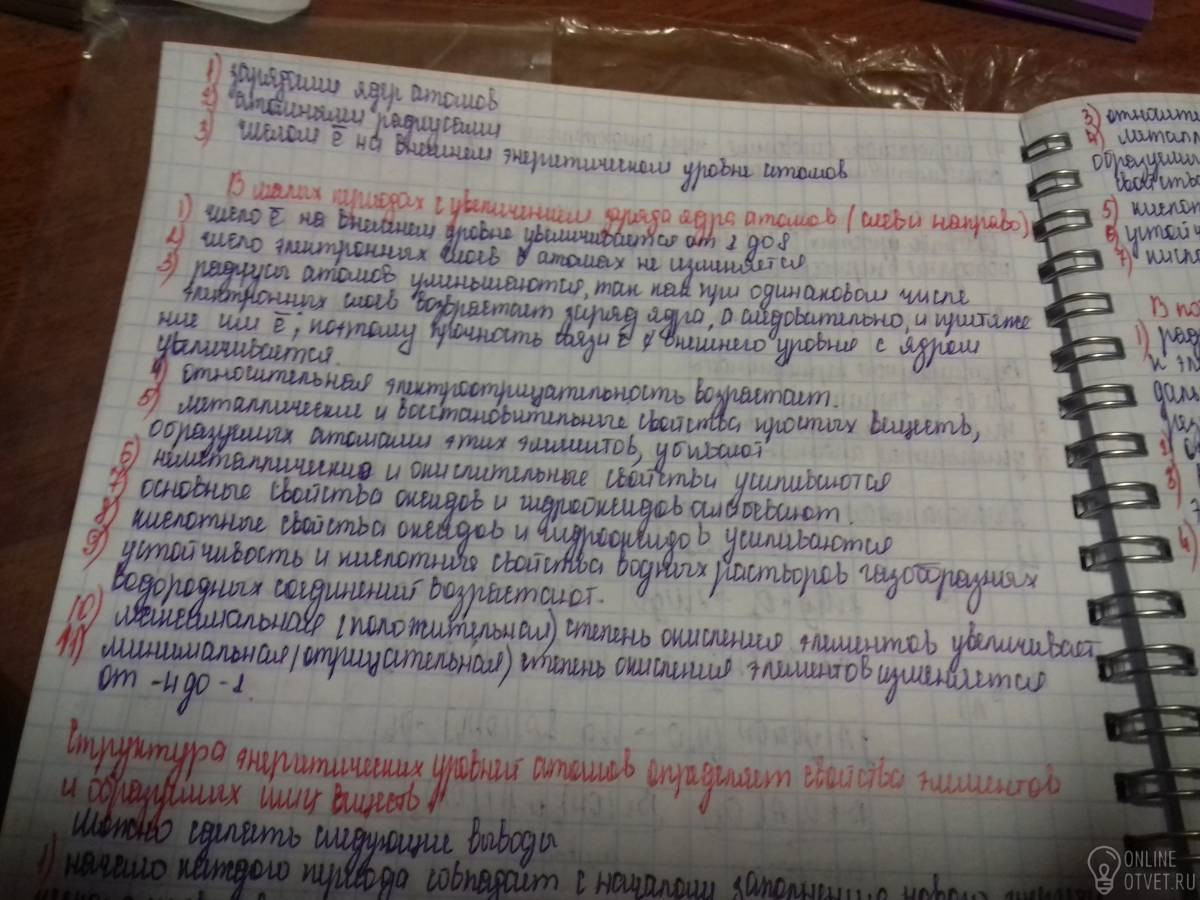 1) зарядами ядер атомов
2) атомными радиусами
3) числом ē на внешнем энергетическом уровне атомов
В малых периодах с увеличением заряда ядра атомов (слева направо)
1) число ē на внешнем уровне увеличивается от 1 до 8
2) число электронных слоев в атомах не изменяется
3) радиусы атомов уменьшаются, так как при одинаковом числе
электронных слоев возрастает заряд ядра, а следовательно, и притяже
ние им ē, поэтому прочность связи ē внешнего уровня с ядром
увеличивается.
4) относительная электроотрицательность возрастает.
5) металлические и восстановительные свойства простых веществ,
образуемых атомами этих элементов, убывают
6) неметаллические и окислительные свойства усиливаются
7) основные свойства оксидов и гидроксидов ослабевают.
8) кислотные свойства оксидов и гидроксидов усиливаются
9) устойчивость и кислотные свойства водных растворов газообразных
водородных соединений возрастают.
10) максимальная (положительная) степень окисления элементов увеличивает
11) минимальная (отрицательная) степень окисления элементов изменяется
от -4 до -1.
Структура энергетических уровней атомов определяет свойства элементов
и образуемых ими веществ
можно сделать следующие выводы
1) начало каждого периода совпадает с началом заполнения нового
3) относите
4) металл
образуемы
свойства
5) кислот
6) устойч
7) кисло
В по
1) рад
и эл
дал
раз
2)
3)
4)
ONLINE
OTVET.RU